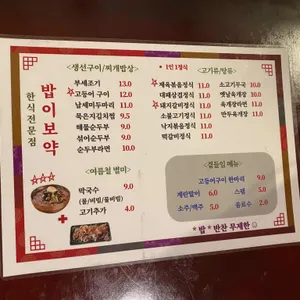 한식전문점
밥이보약
<생선구이/찌개밥상>
부세조기 13.0
☆고등어 구이 12.0
남세미두마리 11.0
묵은지김치찜 9.5
해물순두부 9.0
섞어순두부 9.0
순두부라면 10.0
* 1인 1정식
<고기류/탕류>
☆제육볶음정식 11.0
대패삼겹정식 11.0
☆돼지갈비정식 11.0
소불고기정식 11.0
낙지볶음정식 11.0
떡갈비정식 11.0
소고기무국 10.0
옛날육개장 10.0
육개장라면 11.0
만두육개장 11.0
<여름철 별미>
막국수 9.0
(물/비빔/물비빔)
고기추가 4.0
<곁들임 메뉴>
고등어구이 한마리 9.0
계란말이 6.0 스팸 5.0
소주/맥주 5.0 음료수 2.0
* 밥 * 반찬 무제한